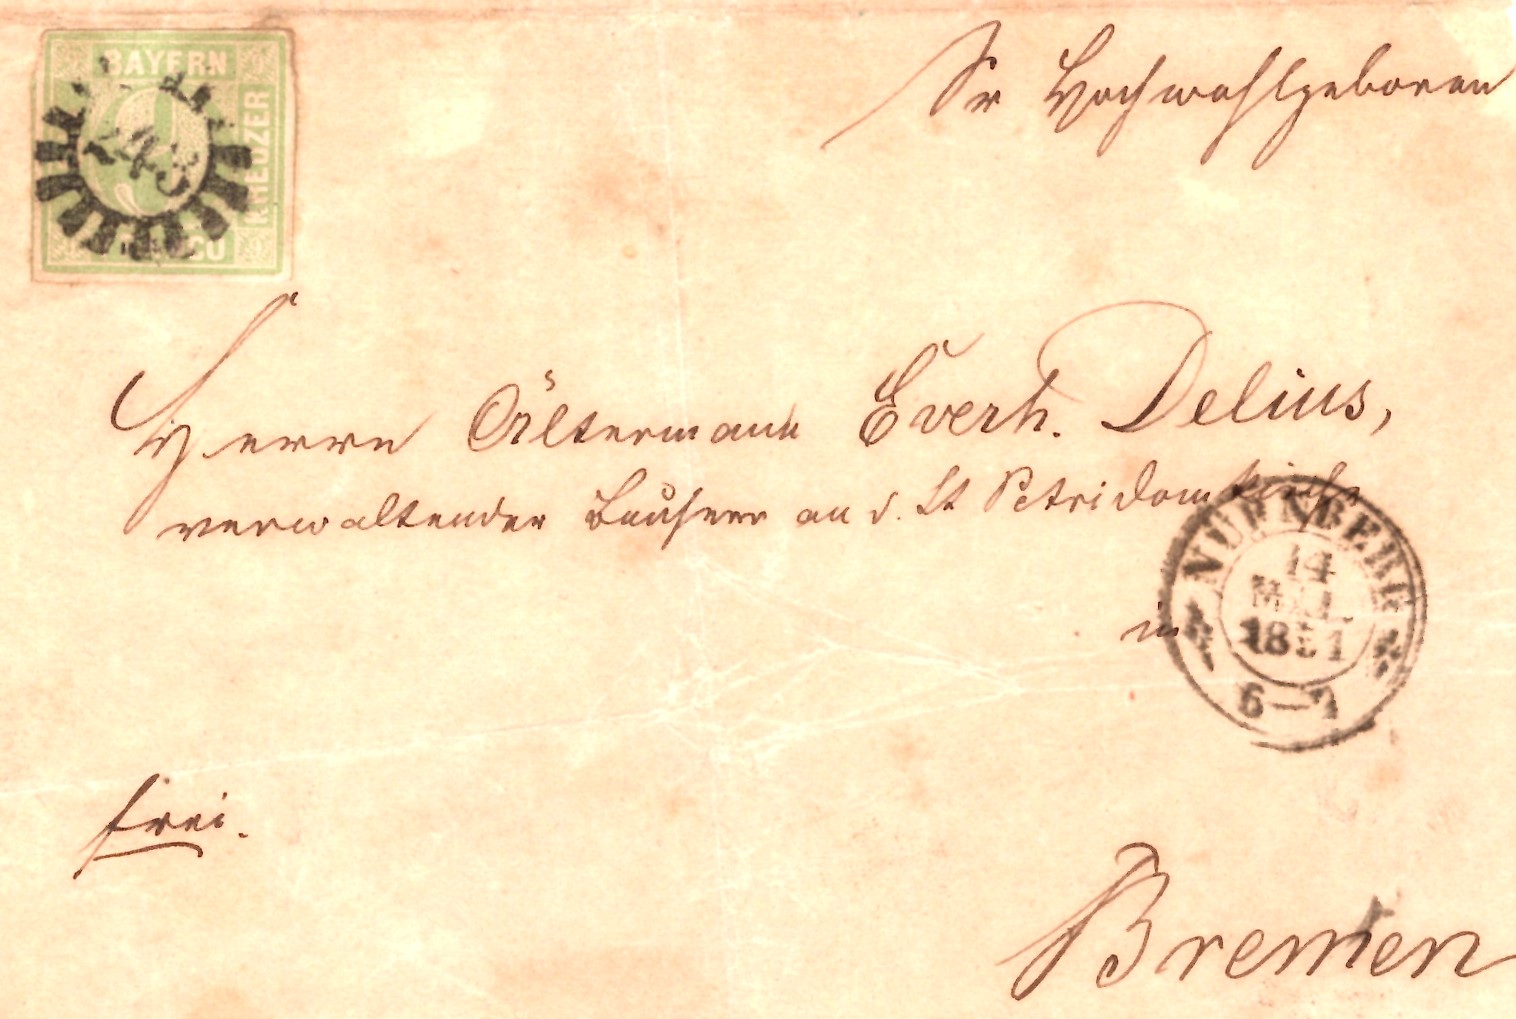 BAYERN
KREUZER
243
Sr Hochwohlgeboren
Herrn Ältermann Everh. Delius,
verwaltender Bauherr an d. St Petri Domkirche
NÜRNBERG
14
1851
in
frei.
Bremen